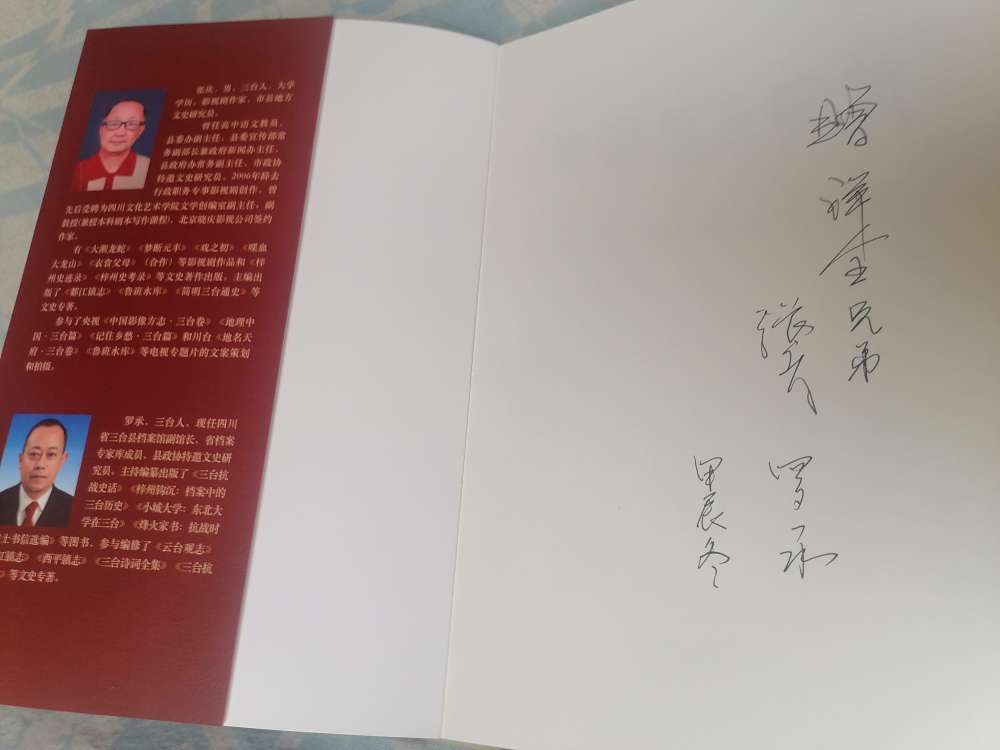 张庆,男,三台人,大学
学历,影视剧作家,市县地方
文史研究员。
曾任高中语文教员、
县委办副主任、县委宣传部常
务副部长兼政府新闻办主任、
县政府办常务副主任、市政协
特邀文史研究员。2006年辞去
行政职务专事影视剧创作,曾
先后受聘为四川文化艺术学院文学创编室副主任、副
教授(兼授本科剧本写作课程),北京晓庆影视公司签约
作家。
有《大濑龙蛇》《梦断元丰》《戏之初》《喋血
大龙山》《衣食父母》(合作)等影视剧作品和《梓
州史迹录》《梓州史考录》等文史著作出版,主编出
版了《郪江镇志》《鲁班水库》《简明三台通史》等
文史专著。
参与了央视《中国影像方志·三台卷》《地理中
国·三台篇》《记住乡愁·三台篇》和川台《地名天
府·三台卷》《鲁班水库》等电视专题片的文案策划
和拍摄。
罗承,三台人,现任四川
省三台县档案馆副馆长,省档案
专家库成员、县政协特邀文史研
究员。主持编纂出版了《三台抗
战史话》《梓州钩沉:档案中的
三台历史》《小城大学:东北大
学在三台》《烽火家书:抗战时
士书信选编》等图书,参与编修了《云台观志》
江镇志》《西平镇志》《三台诗词全集》《三台抗
》等文史专著。
赠
祥生兄弟
张庆
罗承
甲辰冬